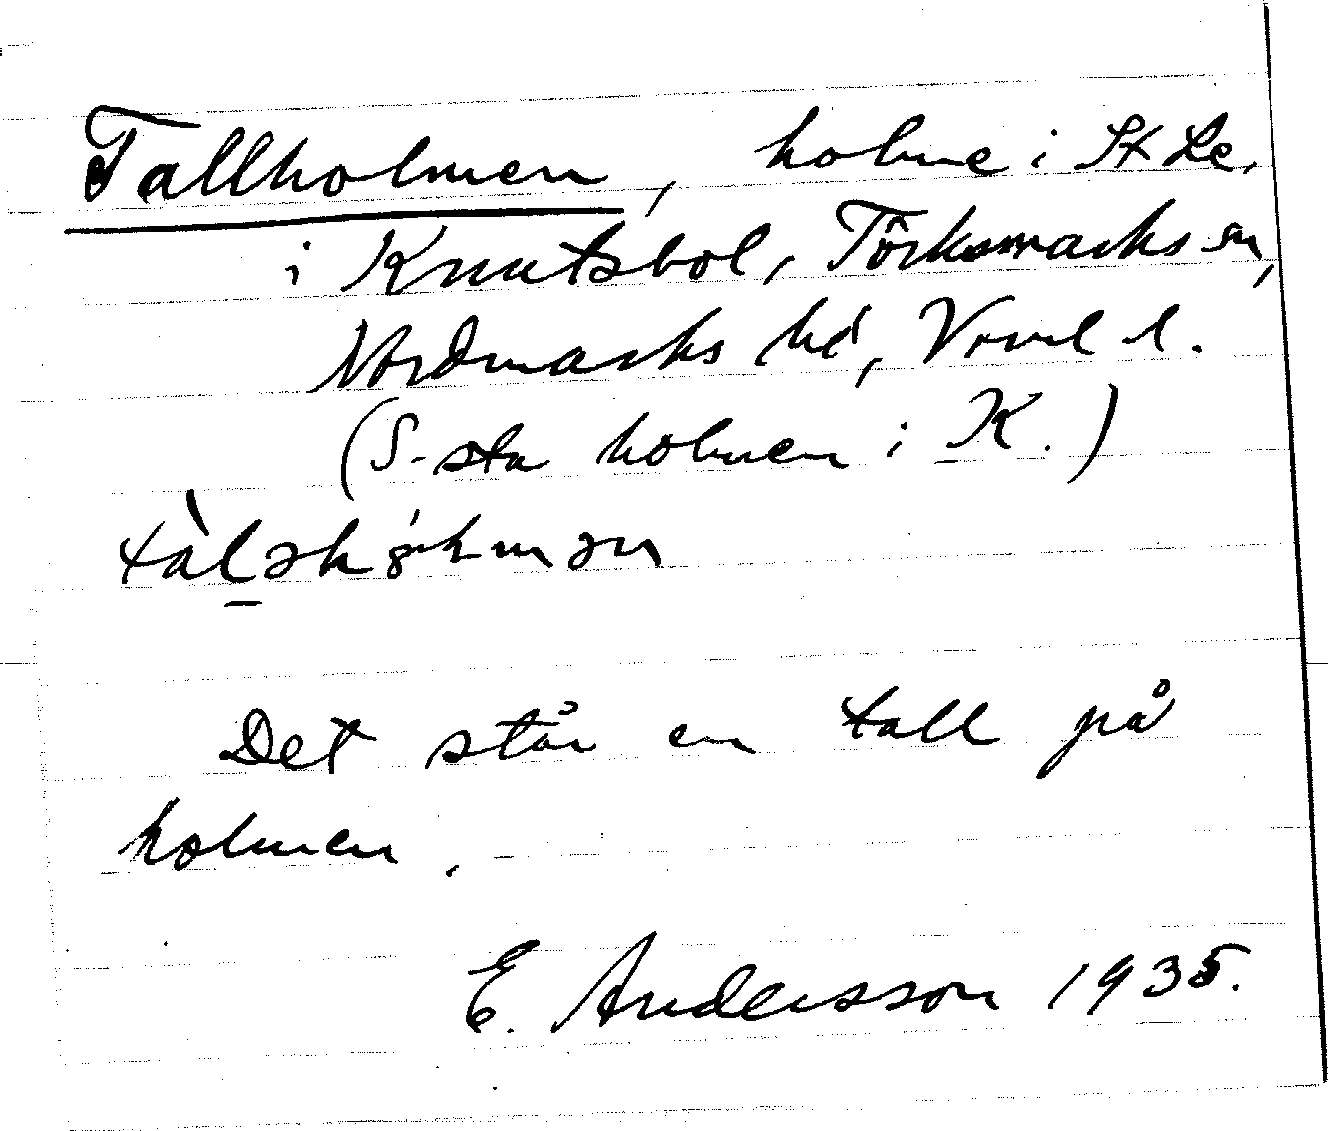 Tallholmen, holme i St Le,
i Knutsbol, Töcksmarks sn,
Nordmarks hd, Vrml l.
(S-sta holmen i K.)
Det står en tall på
holmen.
E. Andersson 1935.